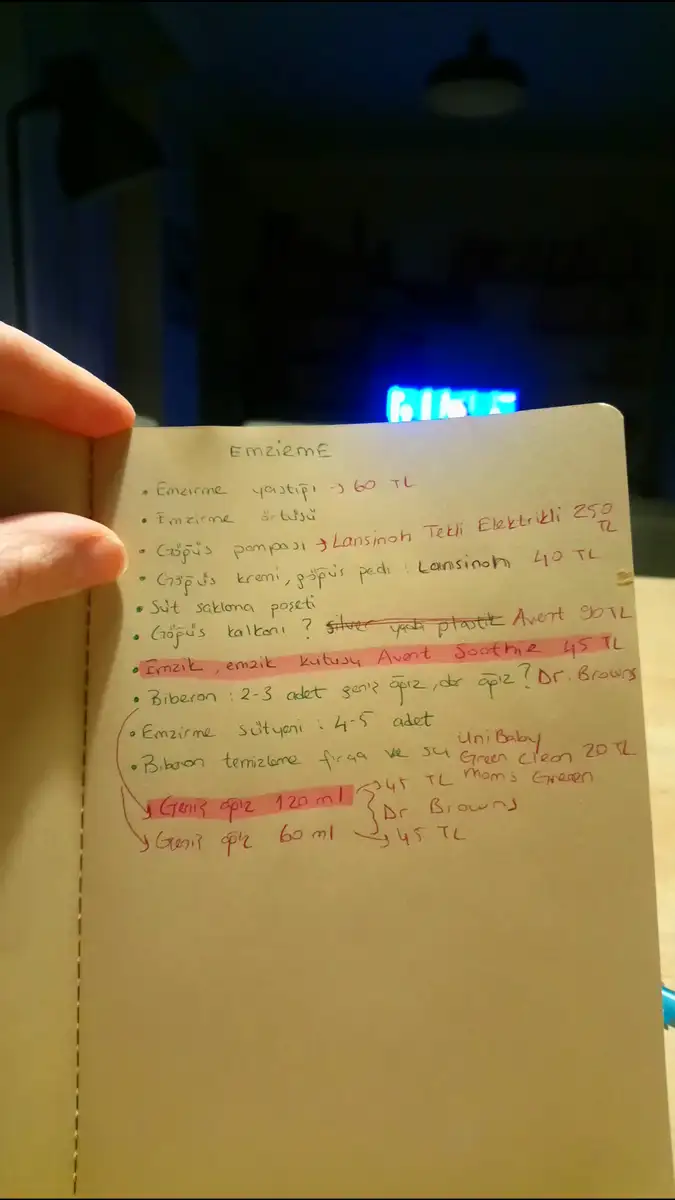 EMZİRME
• Emzirme yastığı → 60 TL
• Emzirme örtüsü
• Göğüs pompası → Lansinoh Tekli Elektrikli 250 TL
• Göğüs kremi, göğüs pedi : Lansinoh 40 TL
• Süt saklama poşeti
• Göğüs kalkanı ? silver yada plastik Avent 90 TL
• Emzik, emzik kutusu Avent Soothie 45 TL
• Biberon : 2-3 adet geniş ağız, dar ağız ? Dr. Browns
• Emzirme sütyeni : 4-5 adet
• Biberon temizleme fırça ve su UniBaby
Green Clean 20 TL
Mom's Green
Geniş ağız 120 ml → 45 TL
Dr Browns
Geniş ağız 60 ml → 45 TL